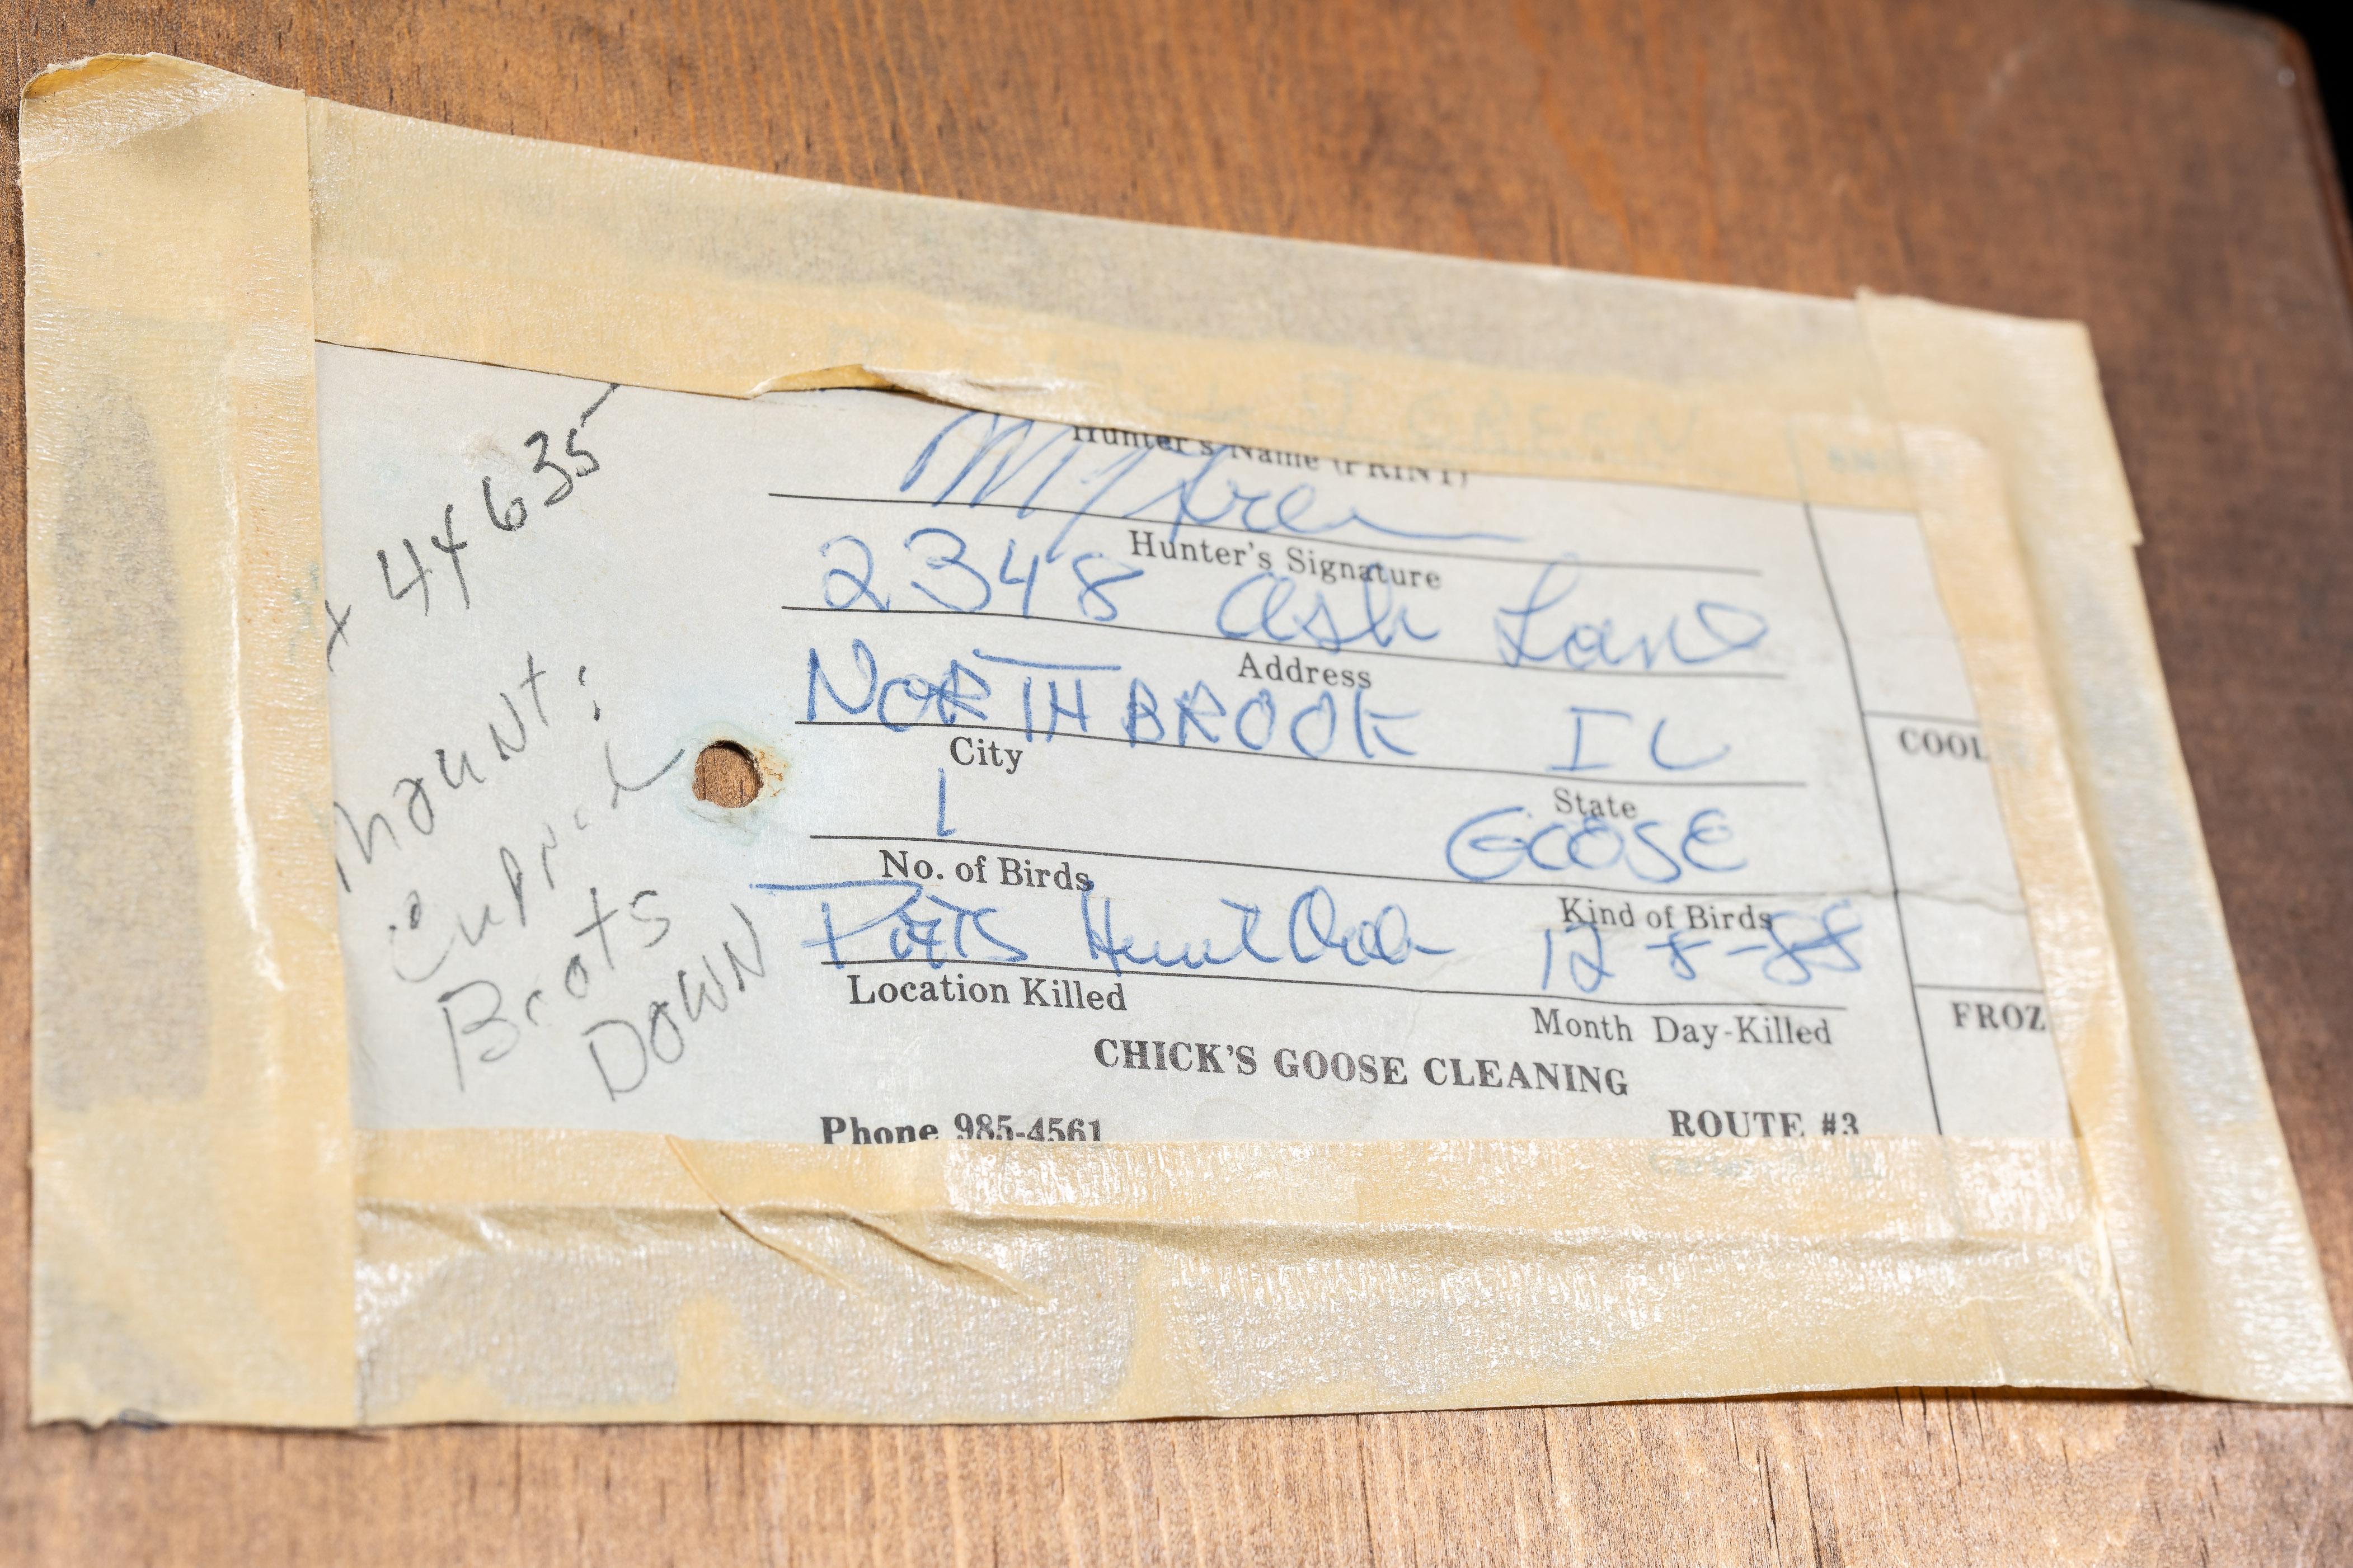 Hunter's Name (PRINT)
Hunter's Signature
2348 Ash Lane
Address
NORTHBROOK IL
City State
1 GOOSE
No. of Birds Kind of Birds
Hunt Club 12-8-88
Location Killed Month Day-Killed
CHICK'S GOOSE CLEANING
Phone 985-4561 ROUTE #3
COOL
FROZ
x 44635
Mount:
Cupped
DOWN